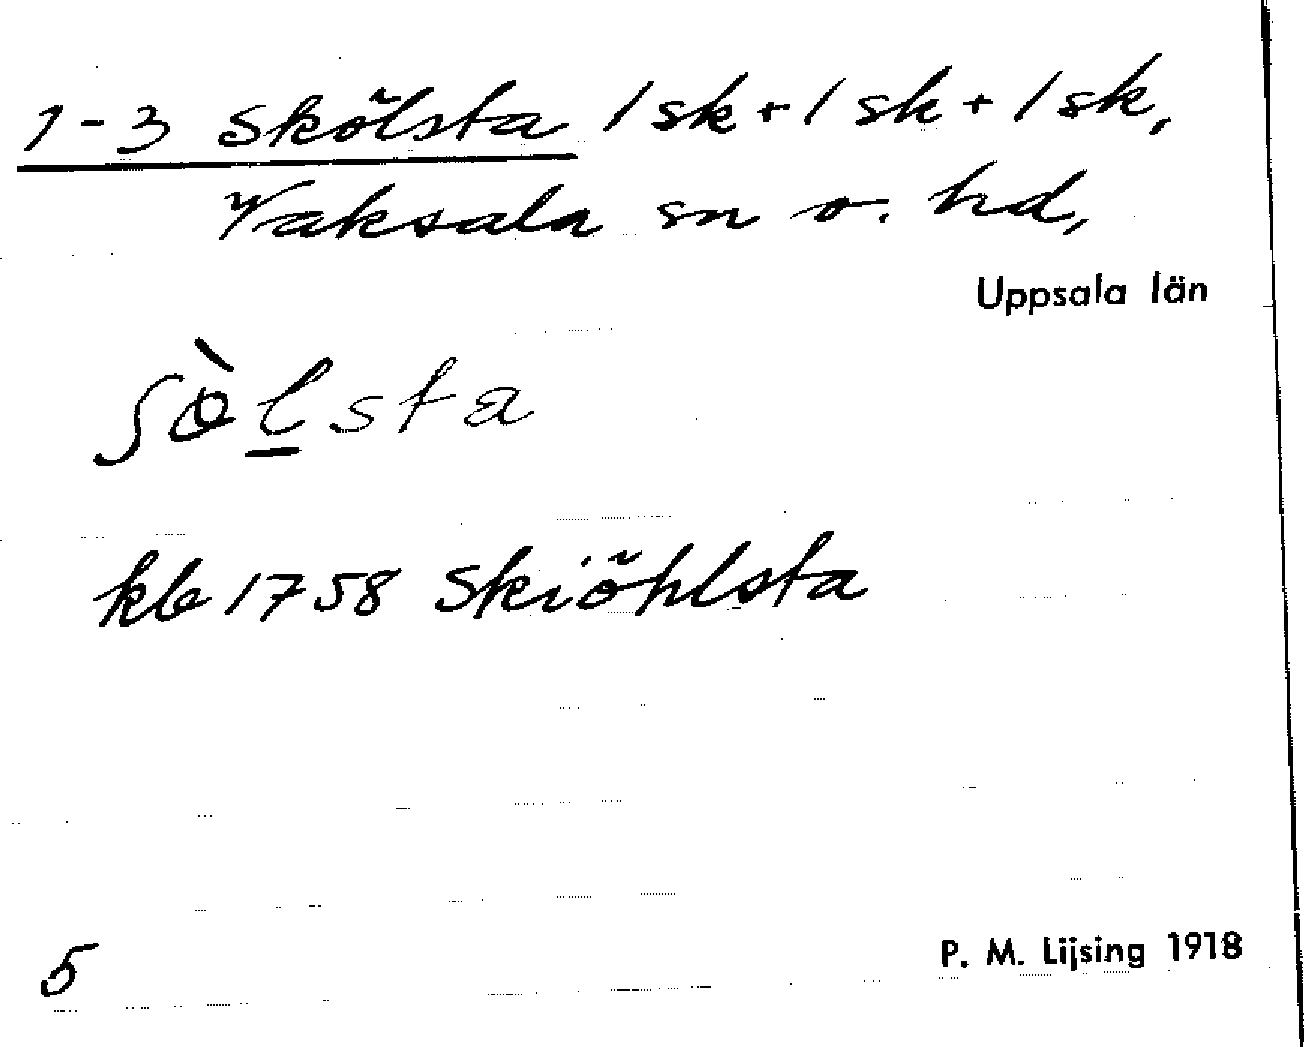 1-3 Skölsta 1 sk + 1 sk + 1 sk,
Vaksala sn o. hd,
Uppsala län
ʃɵ̀l̲sta
kb 1758 Skiöhlsta
5
P. M. Lijsing 1918